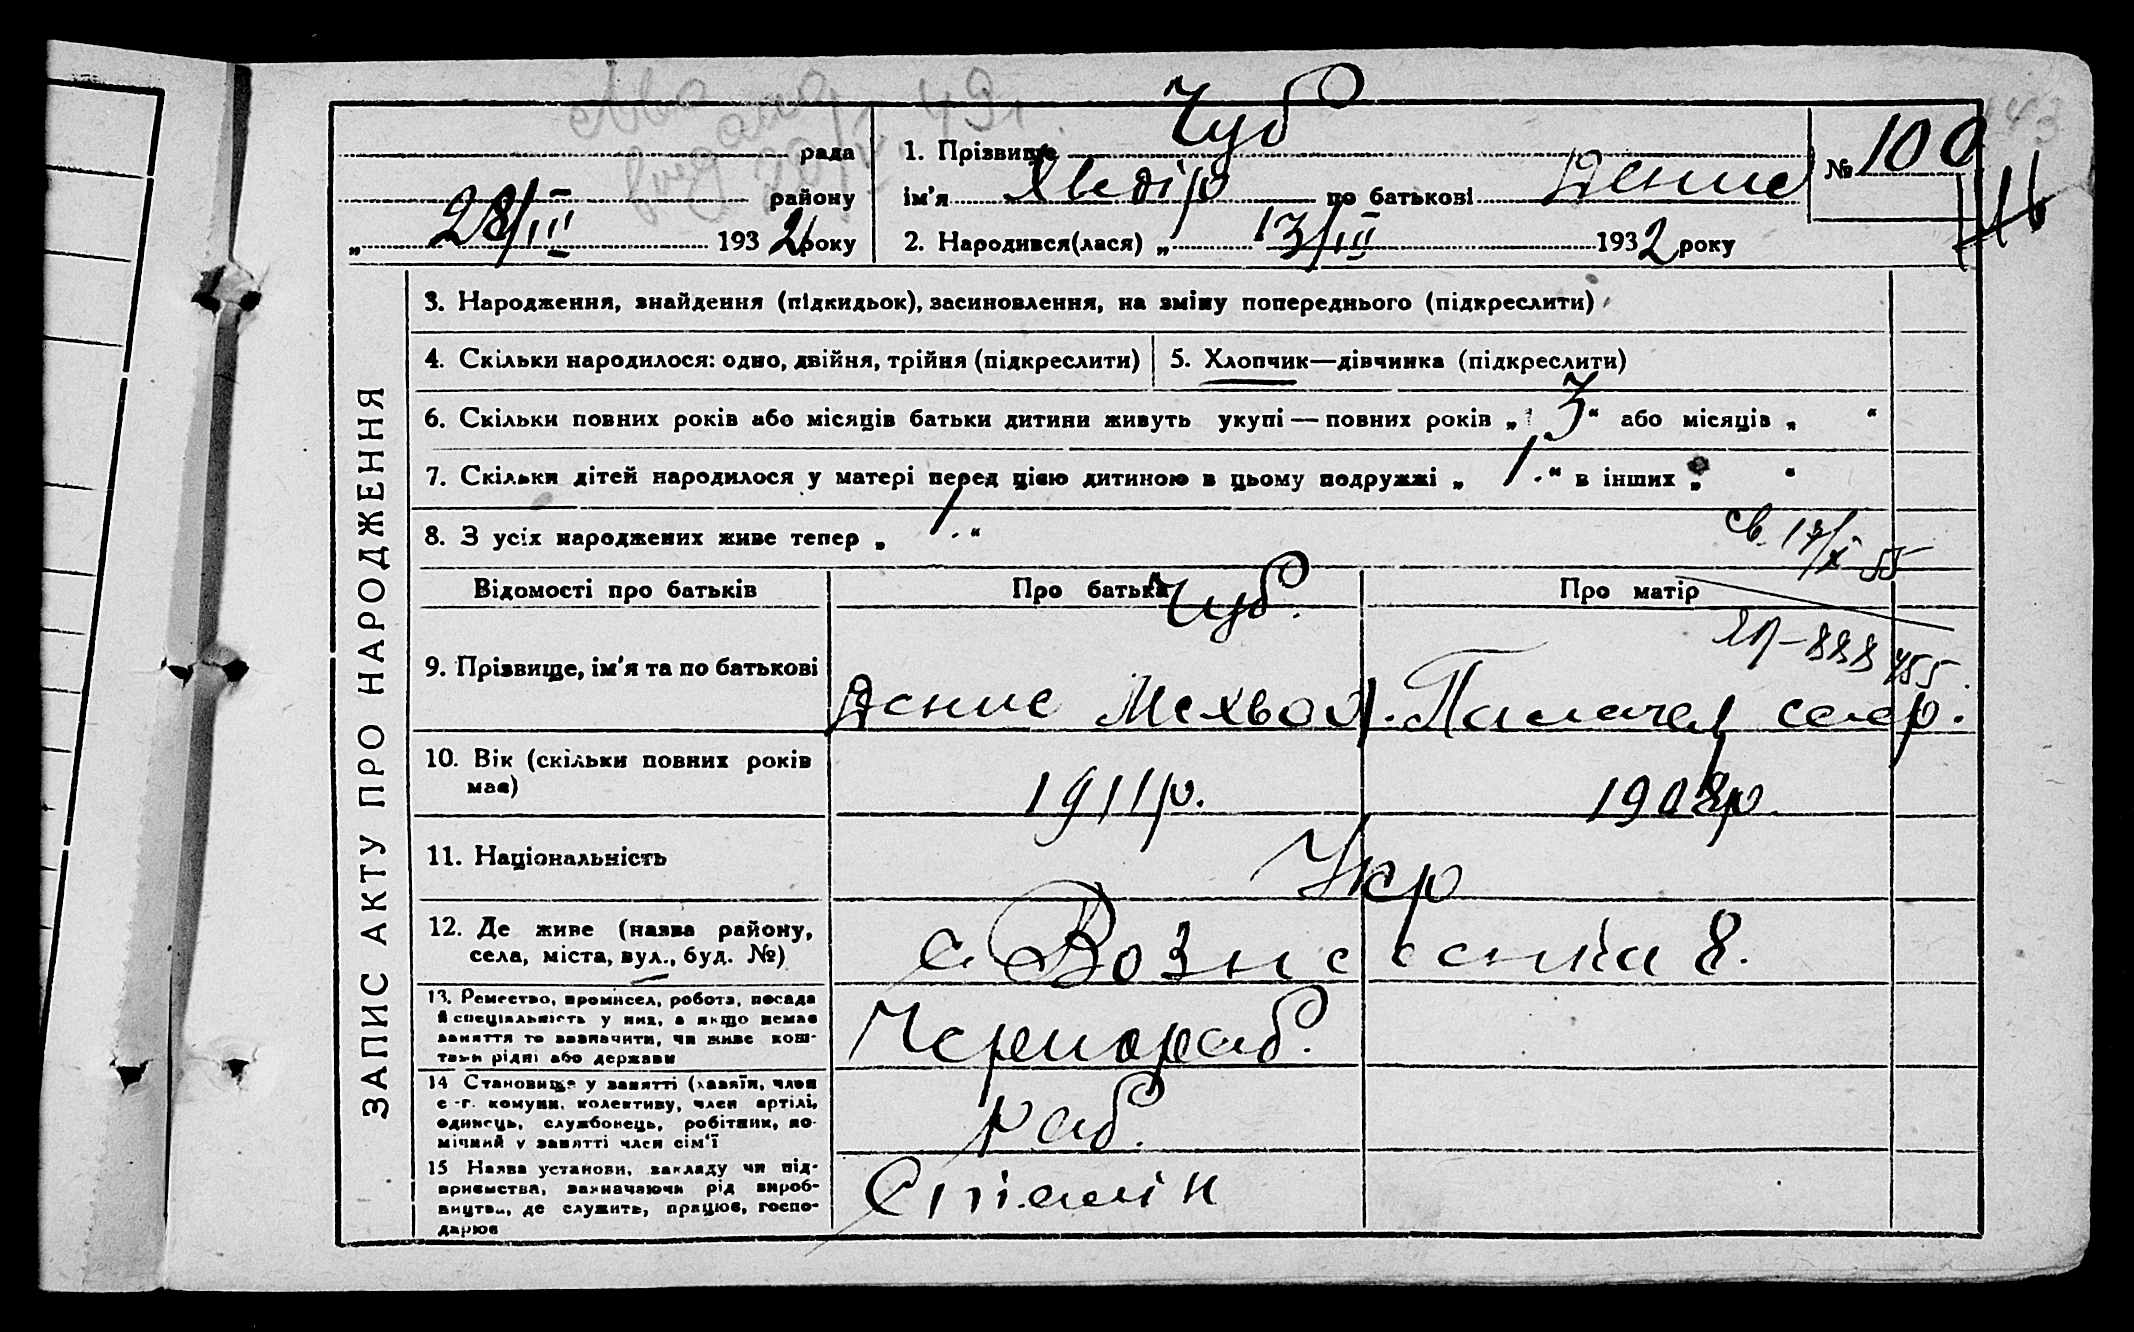 Чуб
рада
1. Прізвище
№ 100
району
ім'я Хведір по батькові Денис
116
„ 28/III 1932 року
2. Народився(лася) „ 13/III 1932 року
3. Народження, знайдення (підкидьок), засиновлення, на зміну попереднього (підкреслити)
4. Скільки народилося: одно, двійня, трійня (підкреслити)
5. Хлопчик—дівчинка (підкреслити)
6. Скільки повних років або місяців батьки дитини живуть укупі — повних років „ 3 “ або місяців „ “
7. Скільки дітей народилося у матері перед цією дитиною в цьому подружжі „ 1. “ в інших „ “
8. З усіх народжених живе тепер „ 1. “
св. 17/X 55
Відомості про батьків
Про батька
Про матір
Чуб.
ЯЛ-888 455
9. Прізвище, ім'я та по батькові
Денис Мехвод. Палачея
10. Вік (скільки повних років має)
1911р.
1908р.
11. Національність
Укр
12. Де живе (назва району,
села, міста, вул., буд. №)
с. Вознесенка 8.
13. Ремество, промисел, робота, посада
й спеціяльність у них, а якщо немає
заняття то зазначити, чи живе кош-
тами рідні або держави
Чернораб.
14 Становище у занятті (хазяїн, член
с.-г. комуни, колективу, член артілі,
одинець, службовець, робітник, по-
мічний у занятті член сім'ї
раб.
15 Назва установи, закладу чи під-
приємства, зазначаючи рід вироб-
ництва, де служить, працює, госпо-
дарює
ЗАПИС АКТУ ПРО НАРОДЖЕННЯ